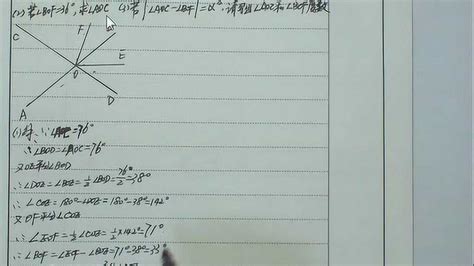 (2) 若∠BOF=36°,求∠AOC (3) 若|∠AOC-∠BOF|=α°,请 ∠AOC和∠BOF度数
C
F
B
E
O
A
D
(1) 解:∵∠AOC=76°
∴∠BOD=∠AOC=76°
又OE平分∠BOD
∴∠DOE=∠BOE=½∠BOD=76°/2=38°
∴∠COE=180°-∠DOE=180°-38°=142°
又OF平分∠COE
∴∠EOF=½∠COE=½×142°=71°
∴∠BOF=∠EOF-∠BOE=71°-38°=33°